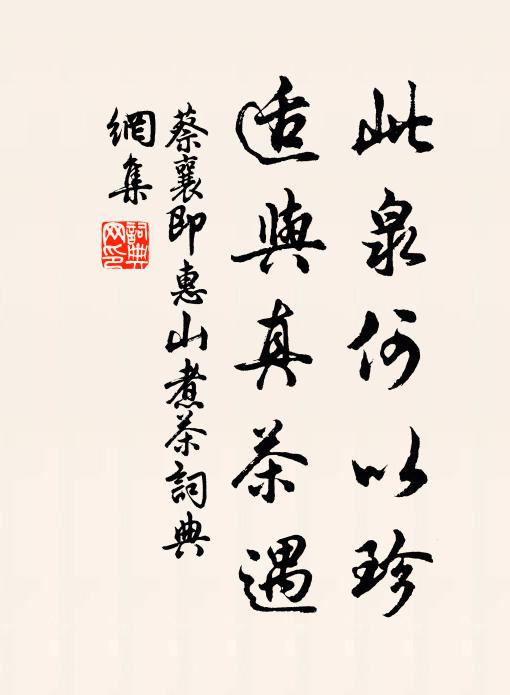 此泉何以珍
适與真茶遇
蔡襄即惠山煮茶詞典
網集
詞典網印